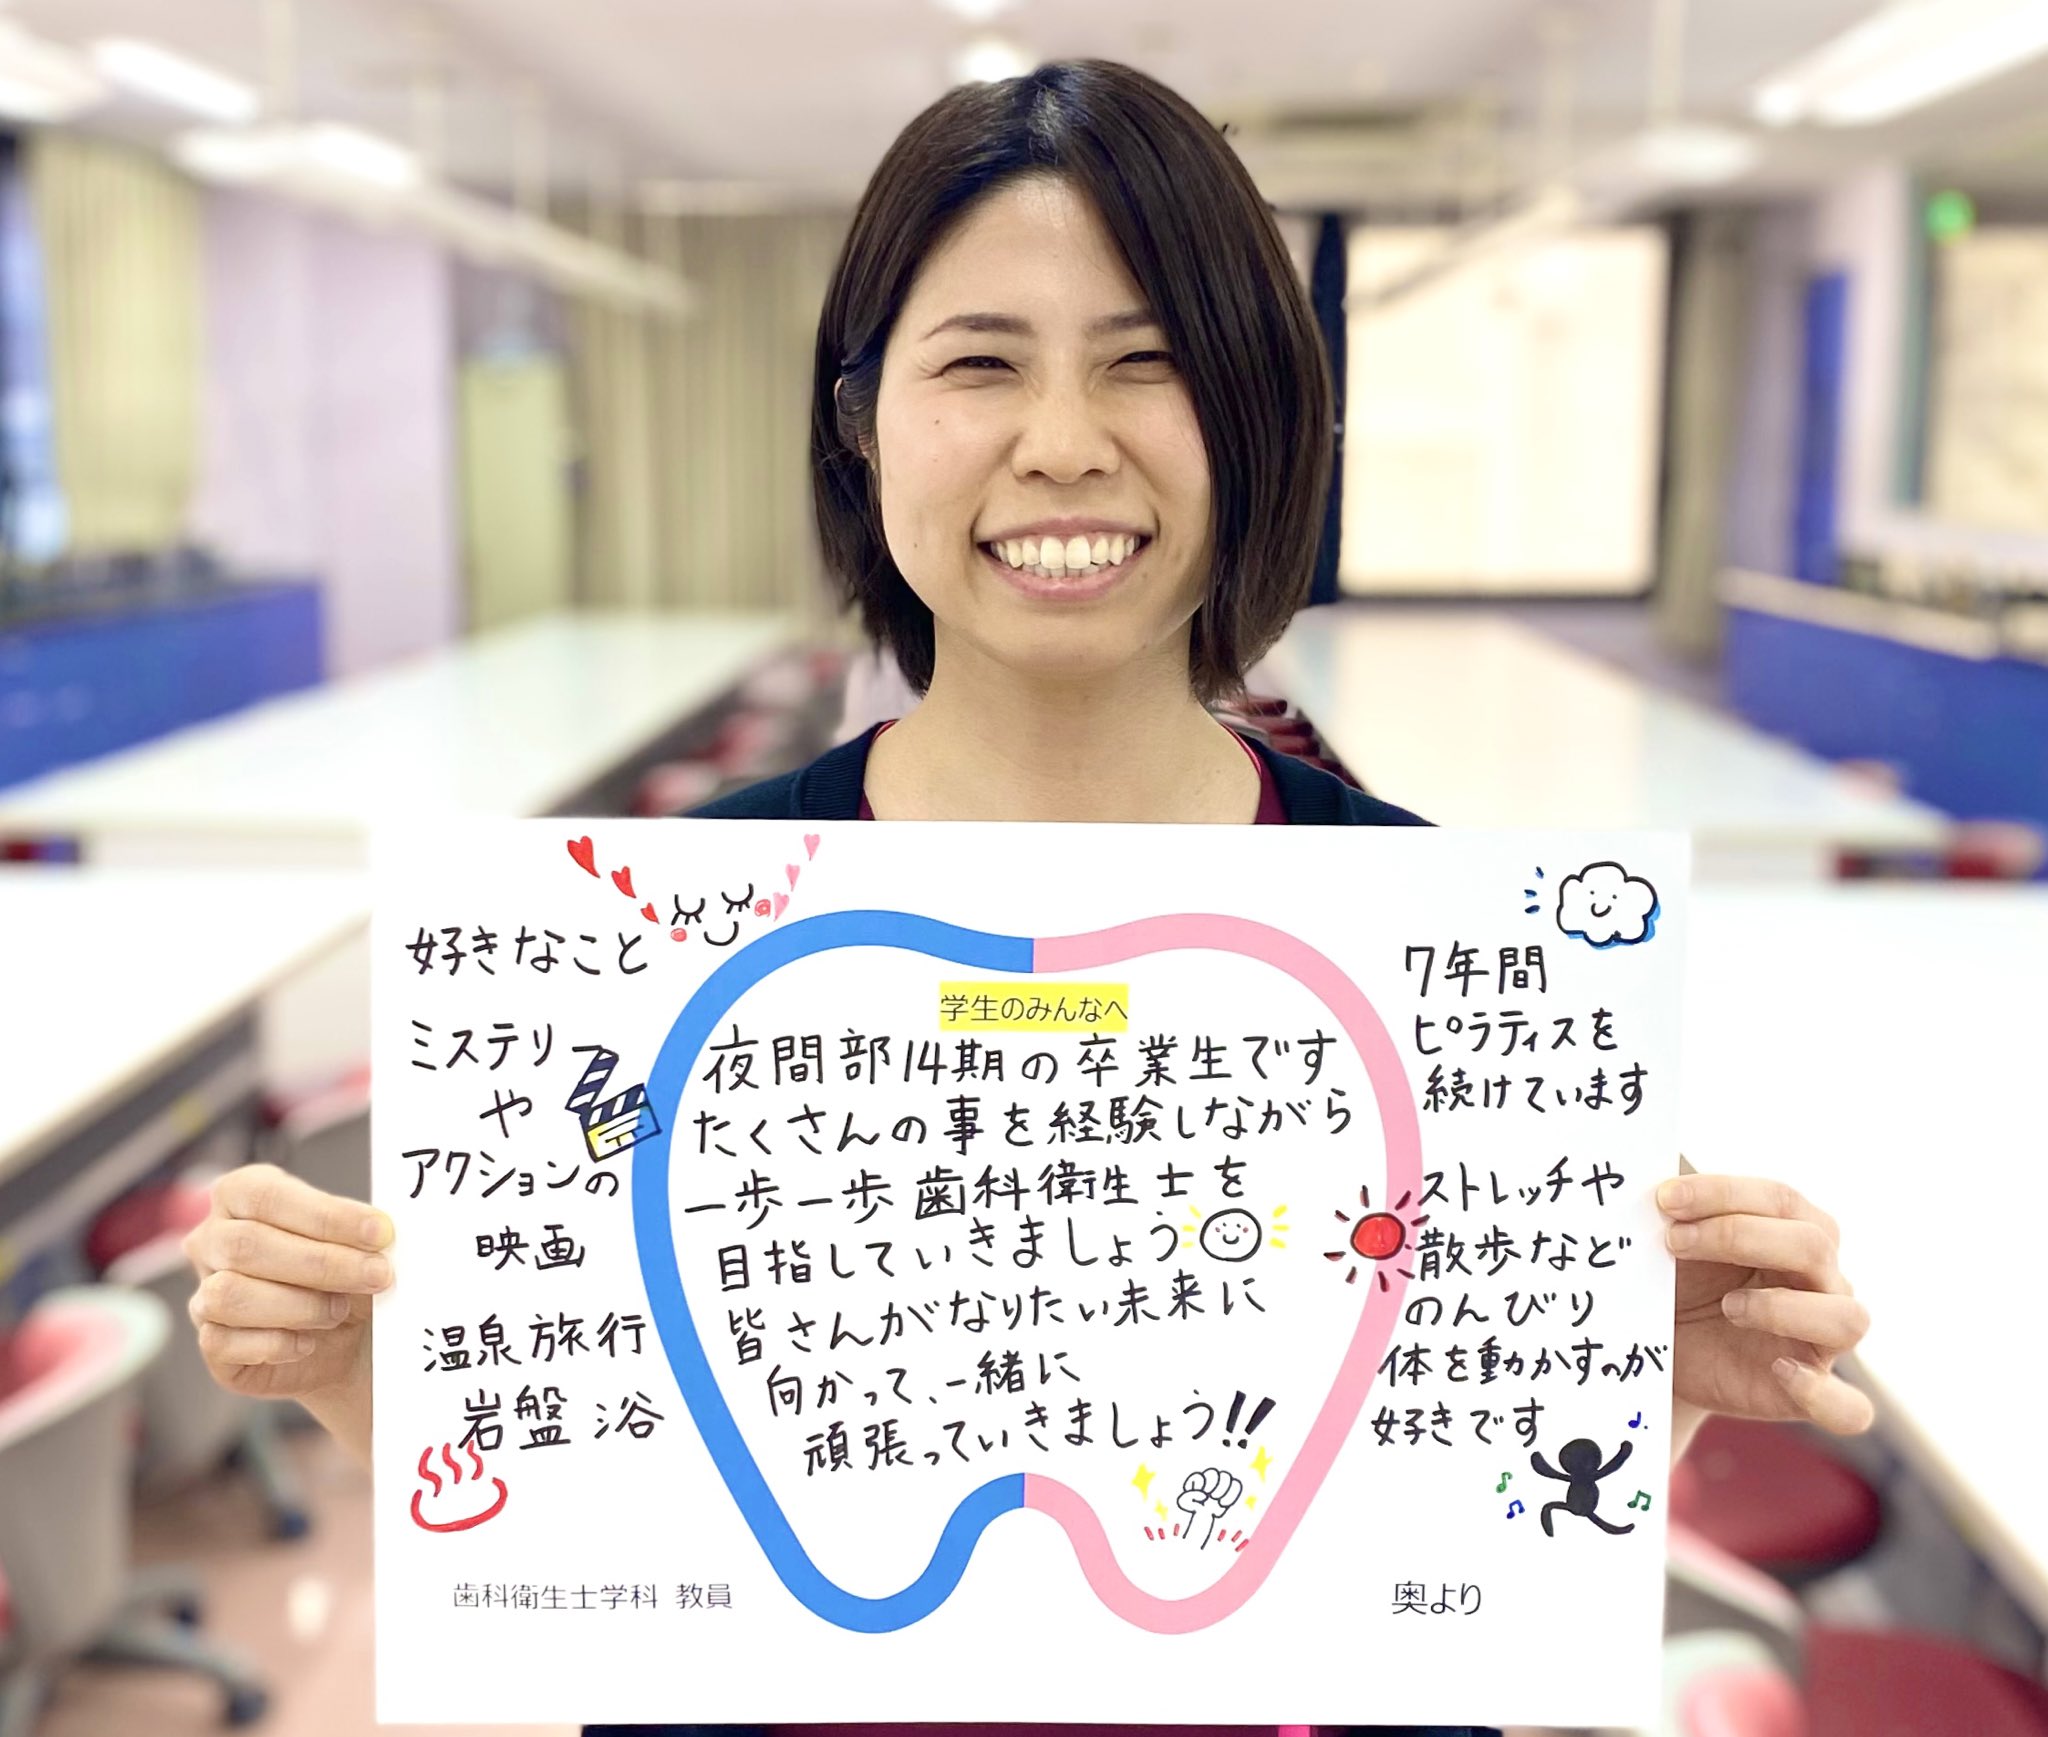 好きなこと
ミステリー
や
アクションの
映画
温泉旅行
岩盤浴
学生のみんなへ
夜間部14期の卒業生です
たくさんの事を経験しながら
一歩一歩歯科衛生士を
目指していきましょう
皆さんがなりたい未来に
向かって、一緒に
頑張っていきましょう!!
7年間
ピラティスを
続けています
ストレッチや
散歩など
のんびり
体を動かすのが
好きです
歯科衛生士学科 教員
奥より